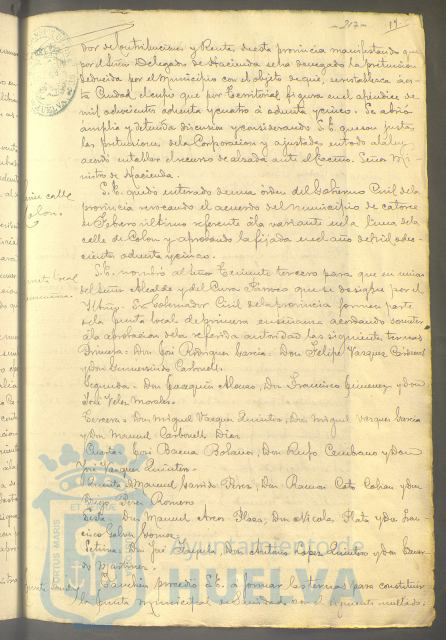 217- 19
dor de Contribuciones y Rentas de esta provincia manifestando que
por el Señor Delegado de Hacienda se ha denegado la pretension
deducida por el Municipio con el objeto de que, se restablezca á es-
ta Ciudad, el cupo que por Territorial figura en el apendice de
mil ochocientos ochenta y cuatro á ochenta y cinco. Se abrió
amplia y detenida discusion y considerando S.E. que son justas
las pretensiones de la Corporacion y ajustadas en todo á la ley
acordó entablar el recurso de alzada ante el Excmo. Señor Mi-
nistro de Hacienda.
calle
Colon.
S.E. quedó enterado de una orden del Gobierno Civil de la
provincia revocando el acuerdo del Municipio de catorce
de Febrero último referente á la variante en la linea de la
calle de Colon y aprobando la fijada en el año de mil ocho-
cientos ochenta y cinco.
Junta local
S.E. nombró al Señor Teniente tercero para que en union
del Señor Alcalde y del Cura Parroco que se designe por el
Iltmo. Sr. Gobernador Civil de la provincia forme parte
de la junta local de primera enseñanza acordando someter
á la aprobacion de la referida autoridad las siguientes ternas
Primera- Don José Rodriguez Garcia- Don Felipe Vazquez
y Don Gumersindo Carbonell.
Segunda- Don Joaquin Alonso, Don Francisco Gimenez y Don
José Velez Morales.
Tercera- Don Miguel Vazquez Quintero, Don Miguel Vazquez Garcia
y Don Manuel Carbonell Diaz
Cuarta- José Baena Bolaños, Don Rufo y Don
José Vazquez Quintero-
Quinta- Manuel Garrido Perez, Don Ramon Coto Cobian y Don
Perez Romero
Sesta- Don Manuel Arcos Plaza, Don Nicolas Plata y Don Fran-
cisco Galvez
Setima- Don José Don Antonio Lopez Quintero y Don
Martinez-
Tambien procedió S.E. á formar las ternas para constituir
la Junta Municipal de
PORTUS MARIS
Ayuntamiento de
HUELVA